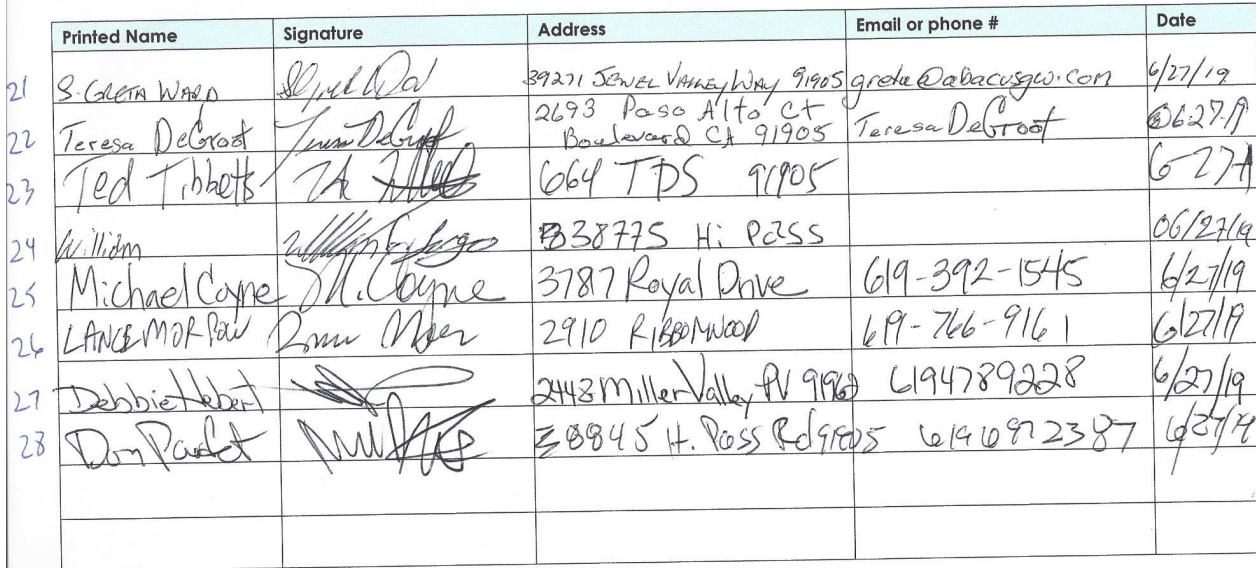 Printed Name Signature Address Email or phone # Date
21 S. GRETA WARD 39271 JEWEL VALLEY WAY 91905 greta@abacusgw.com 6/27/19
22 Teresa DeGroot Teresa DeGroot 2693 Paso Alto CT Teresa DeGroot 06-27-19
Boulevard CA 91905
23 Ted Tibbetts 664 TDS 91905 6-27-19
24 William 38775 Hi Pass 06/27/19
25 Michael Coyne M. Coyne 3787 Royal Drive 619-392-1545 6/27/19
26 LANCE MORROW 2910 RIBBONWOOD 619-766-9161 6/27/19
27 Debbie Hebert 2448 Miller Valley 91962 6194789228 6/27/19
28 Don 38845 Hi Pass Rd 91905 6196972387 6/27/19